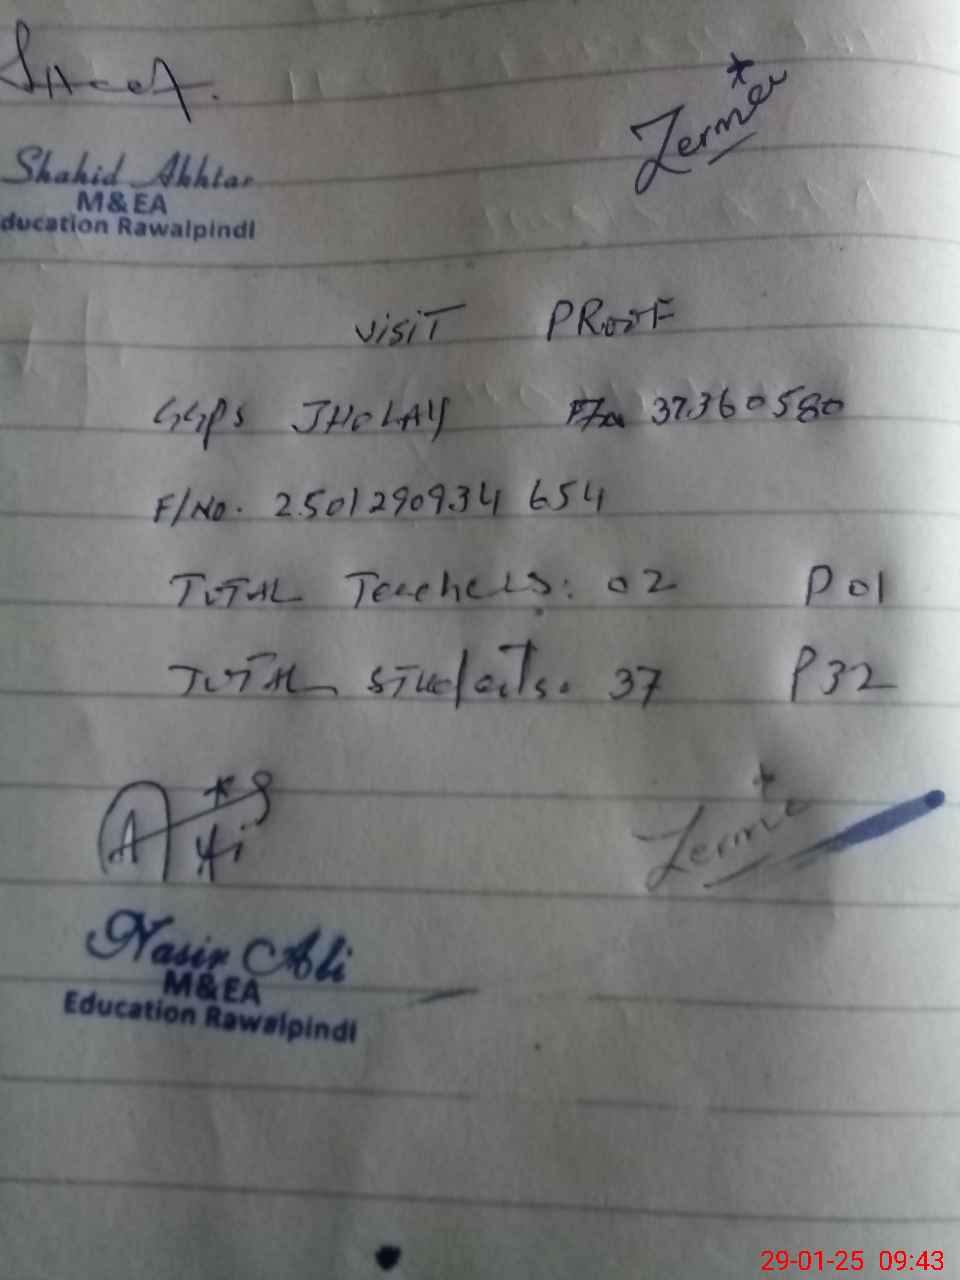 Shahid Akhtar
M&EA
ducation Rawalpindi
VISIT PROOF
GGPS JHOLAY 37360580
F/NO. 2501290934 654
TOTAL Teachers: 02 P 01
TOTAL Students. 37 P 32
Nasir Ali
M&EA
Education Rawalpindi
29-01-25 09:43